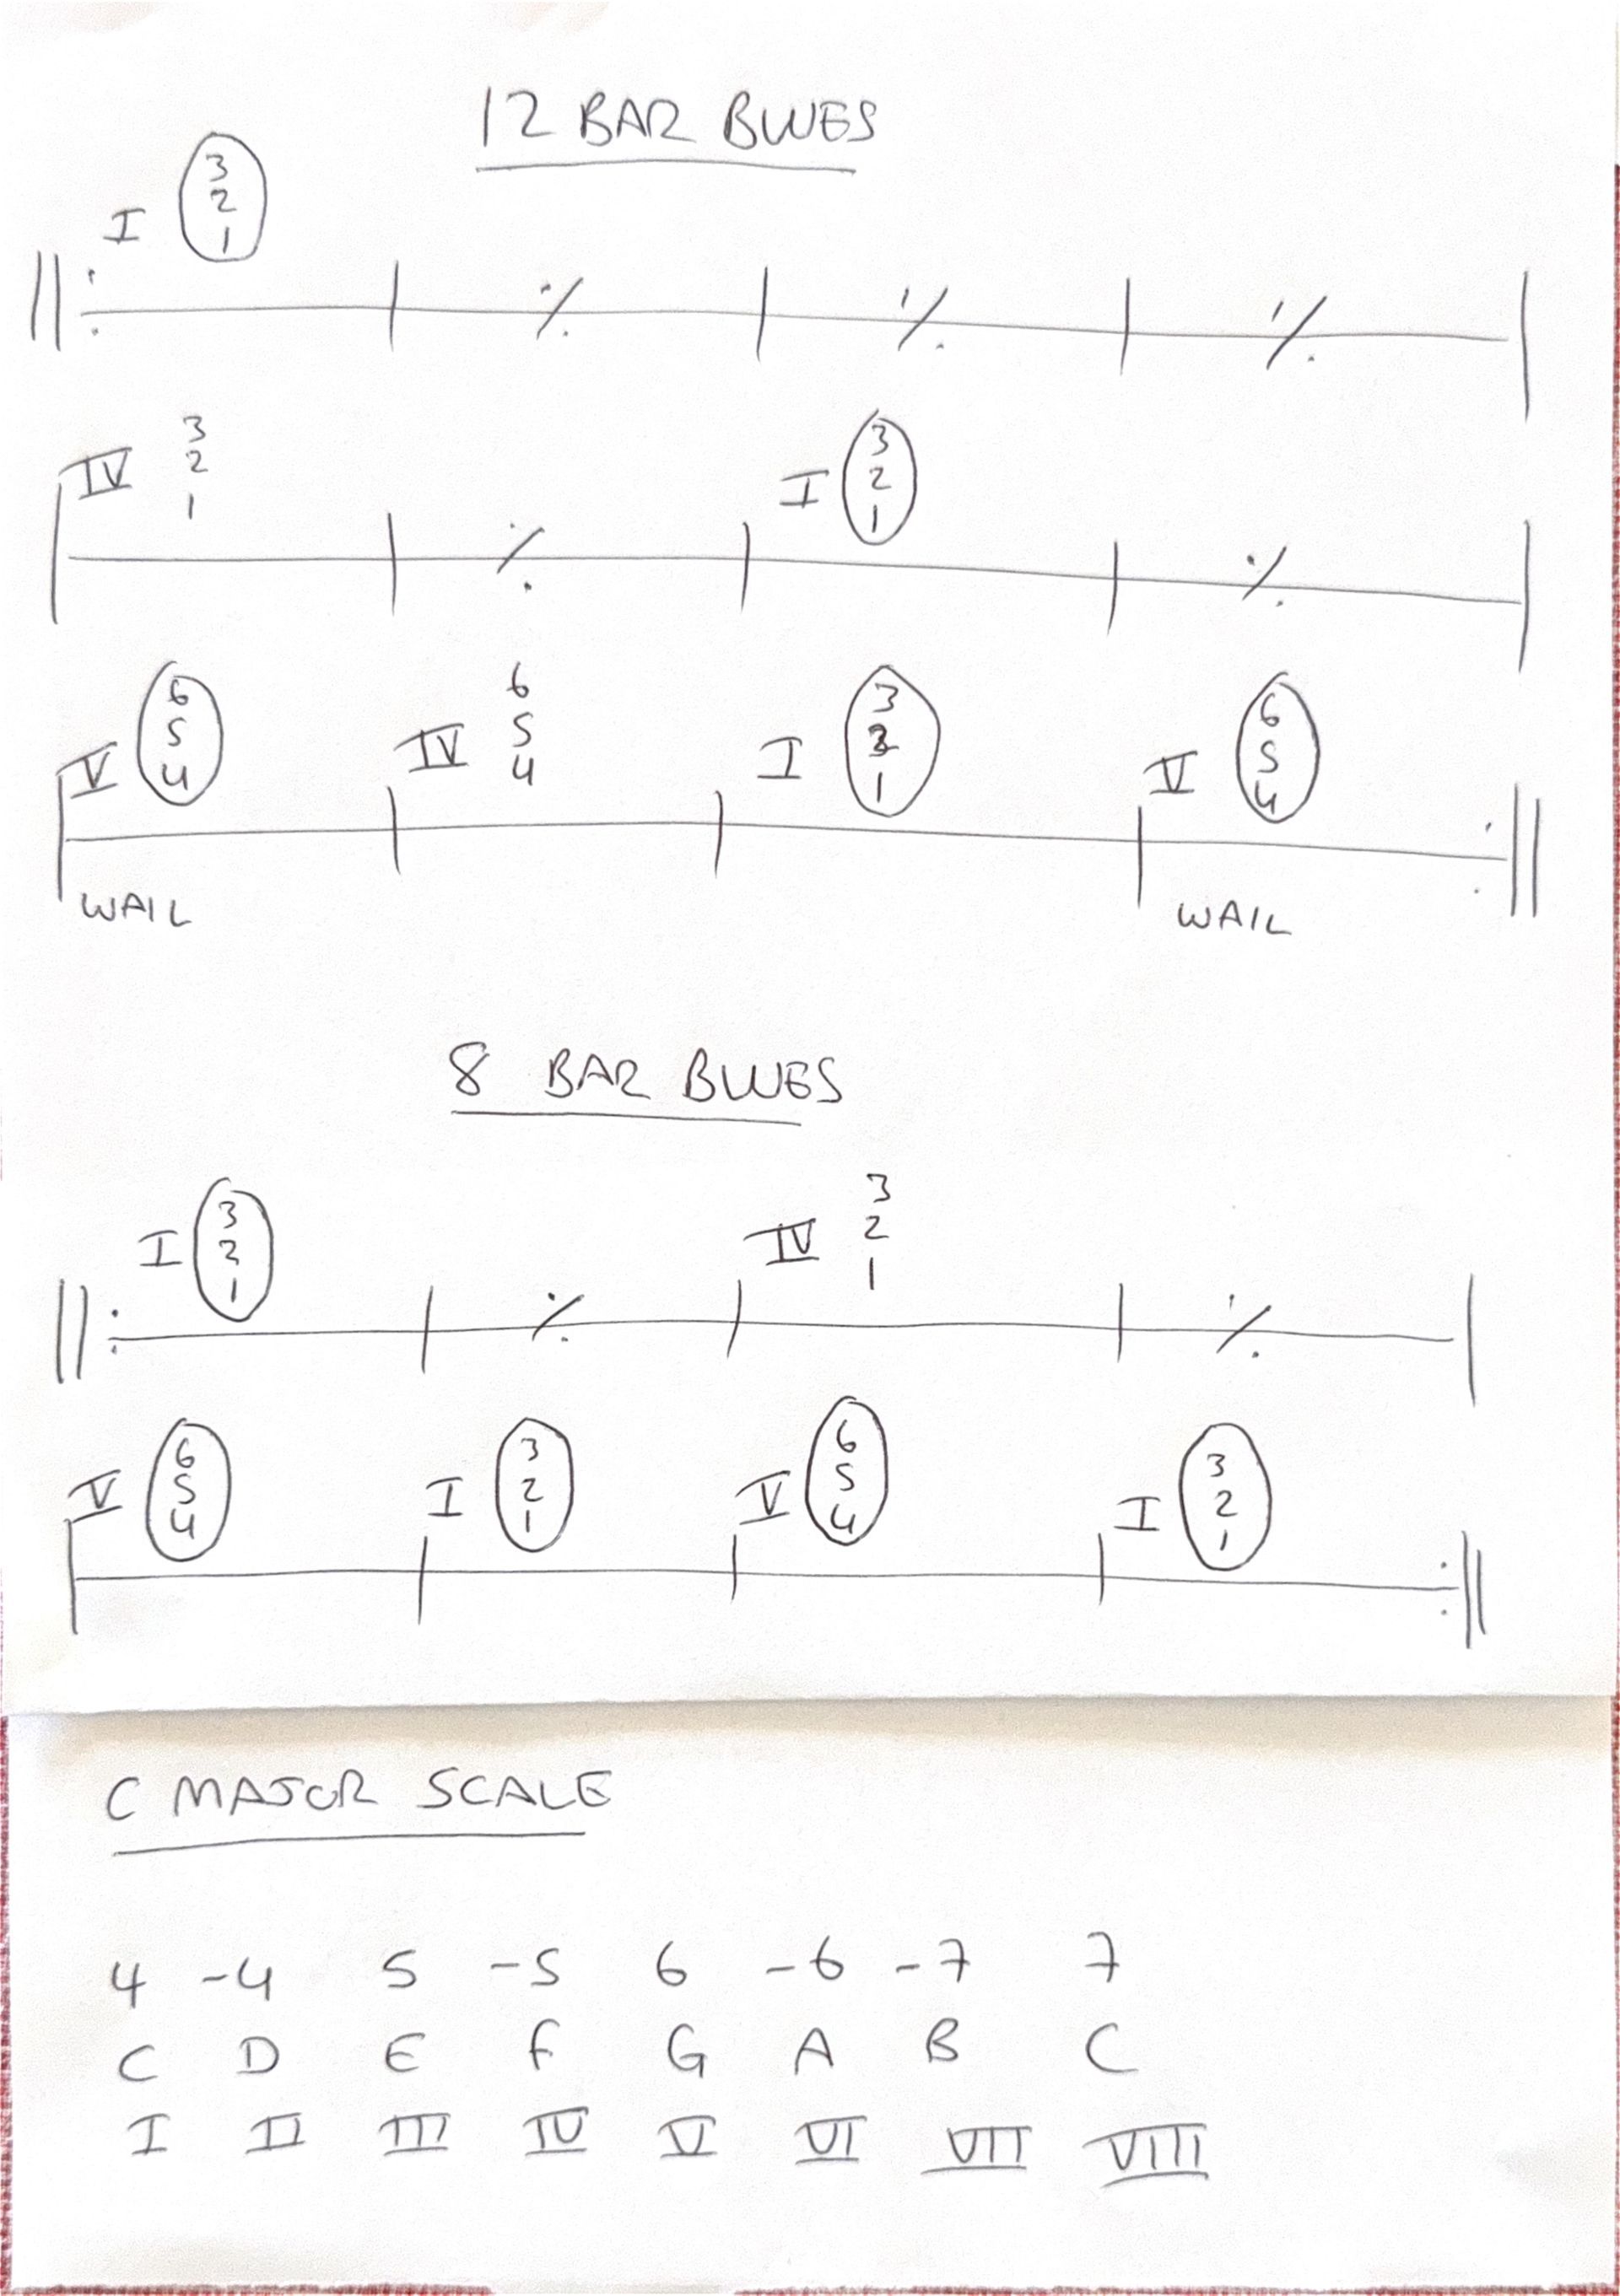 12 BAR BLUES
3
2
I 1
||: | ٪ | ٪ | ٪ |
3
2
IV 1
3
2
I 1
| | ٪ | | ٪ |
6
5
V 4
6
5
IV 4
3
2
I 1
6
5
V 4
| | | | :||
WAIL WAIL
8 BAR BLUES
3
2
I 1
3
2
IV 1
||: | ٪ | | ٪ |
6
5
V 4
3
2
I 1
6
5
V 4
3
2
I 1
| | | | :||
C MAJOR SCALE
4 -4 5 -5 6 -6 -7 7
C D E F G A B C
I II III IV V VI VII VIII